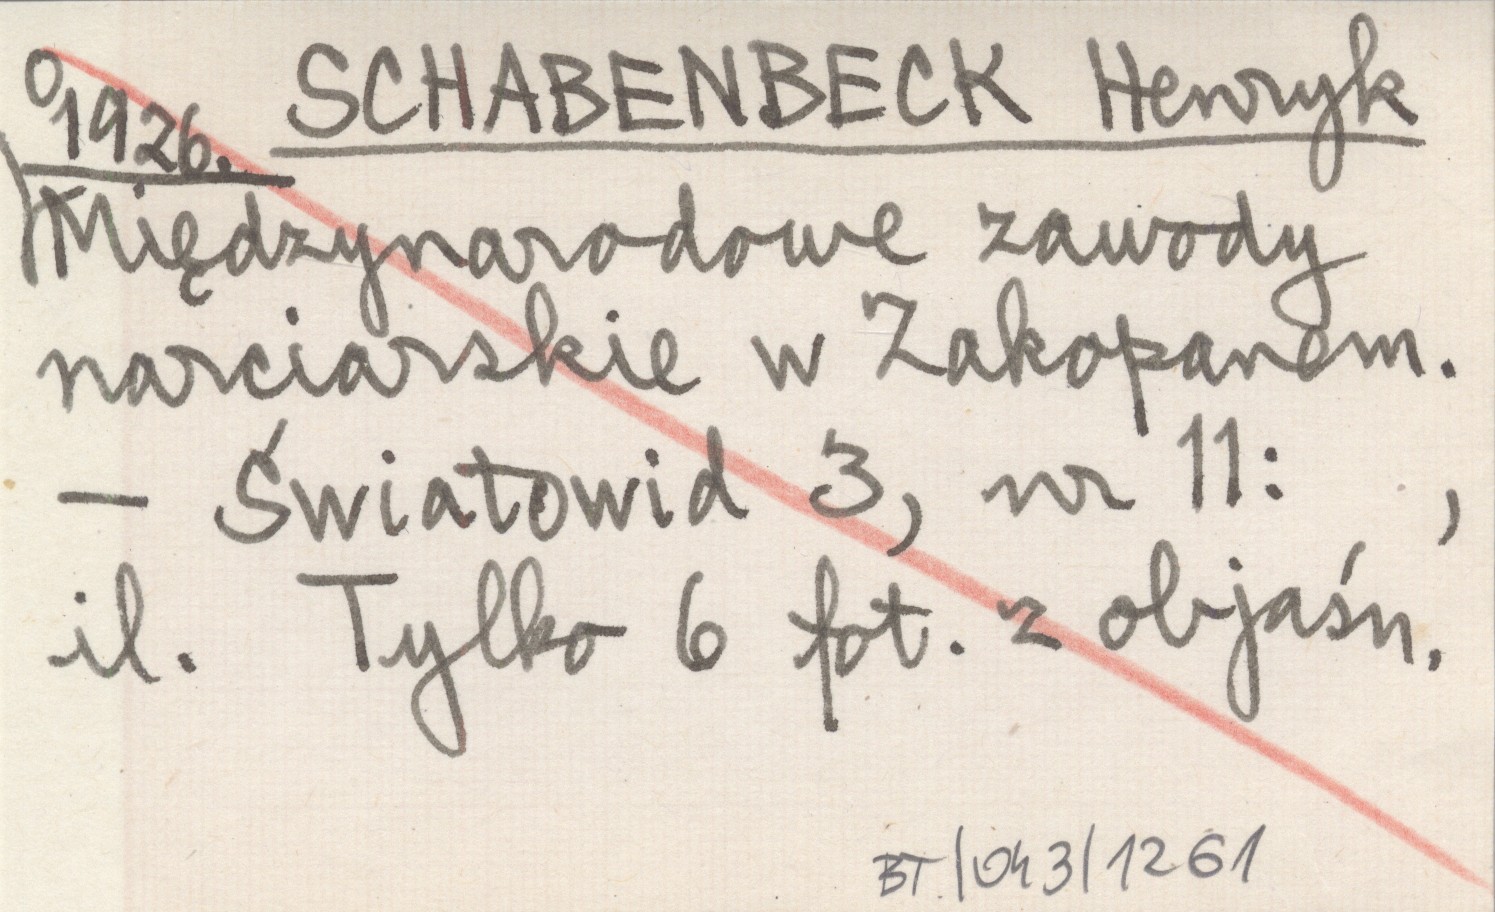 SCHABENBECK Henryk
1926.
Międzynarodowe zawody
narciarskie w Zakopanem.
— Światowid 3, nr 11: ,
il. Tylko 6 fot. z objaśn.
BT/043/1261